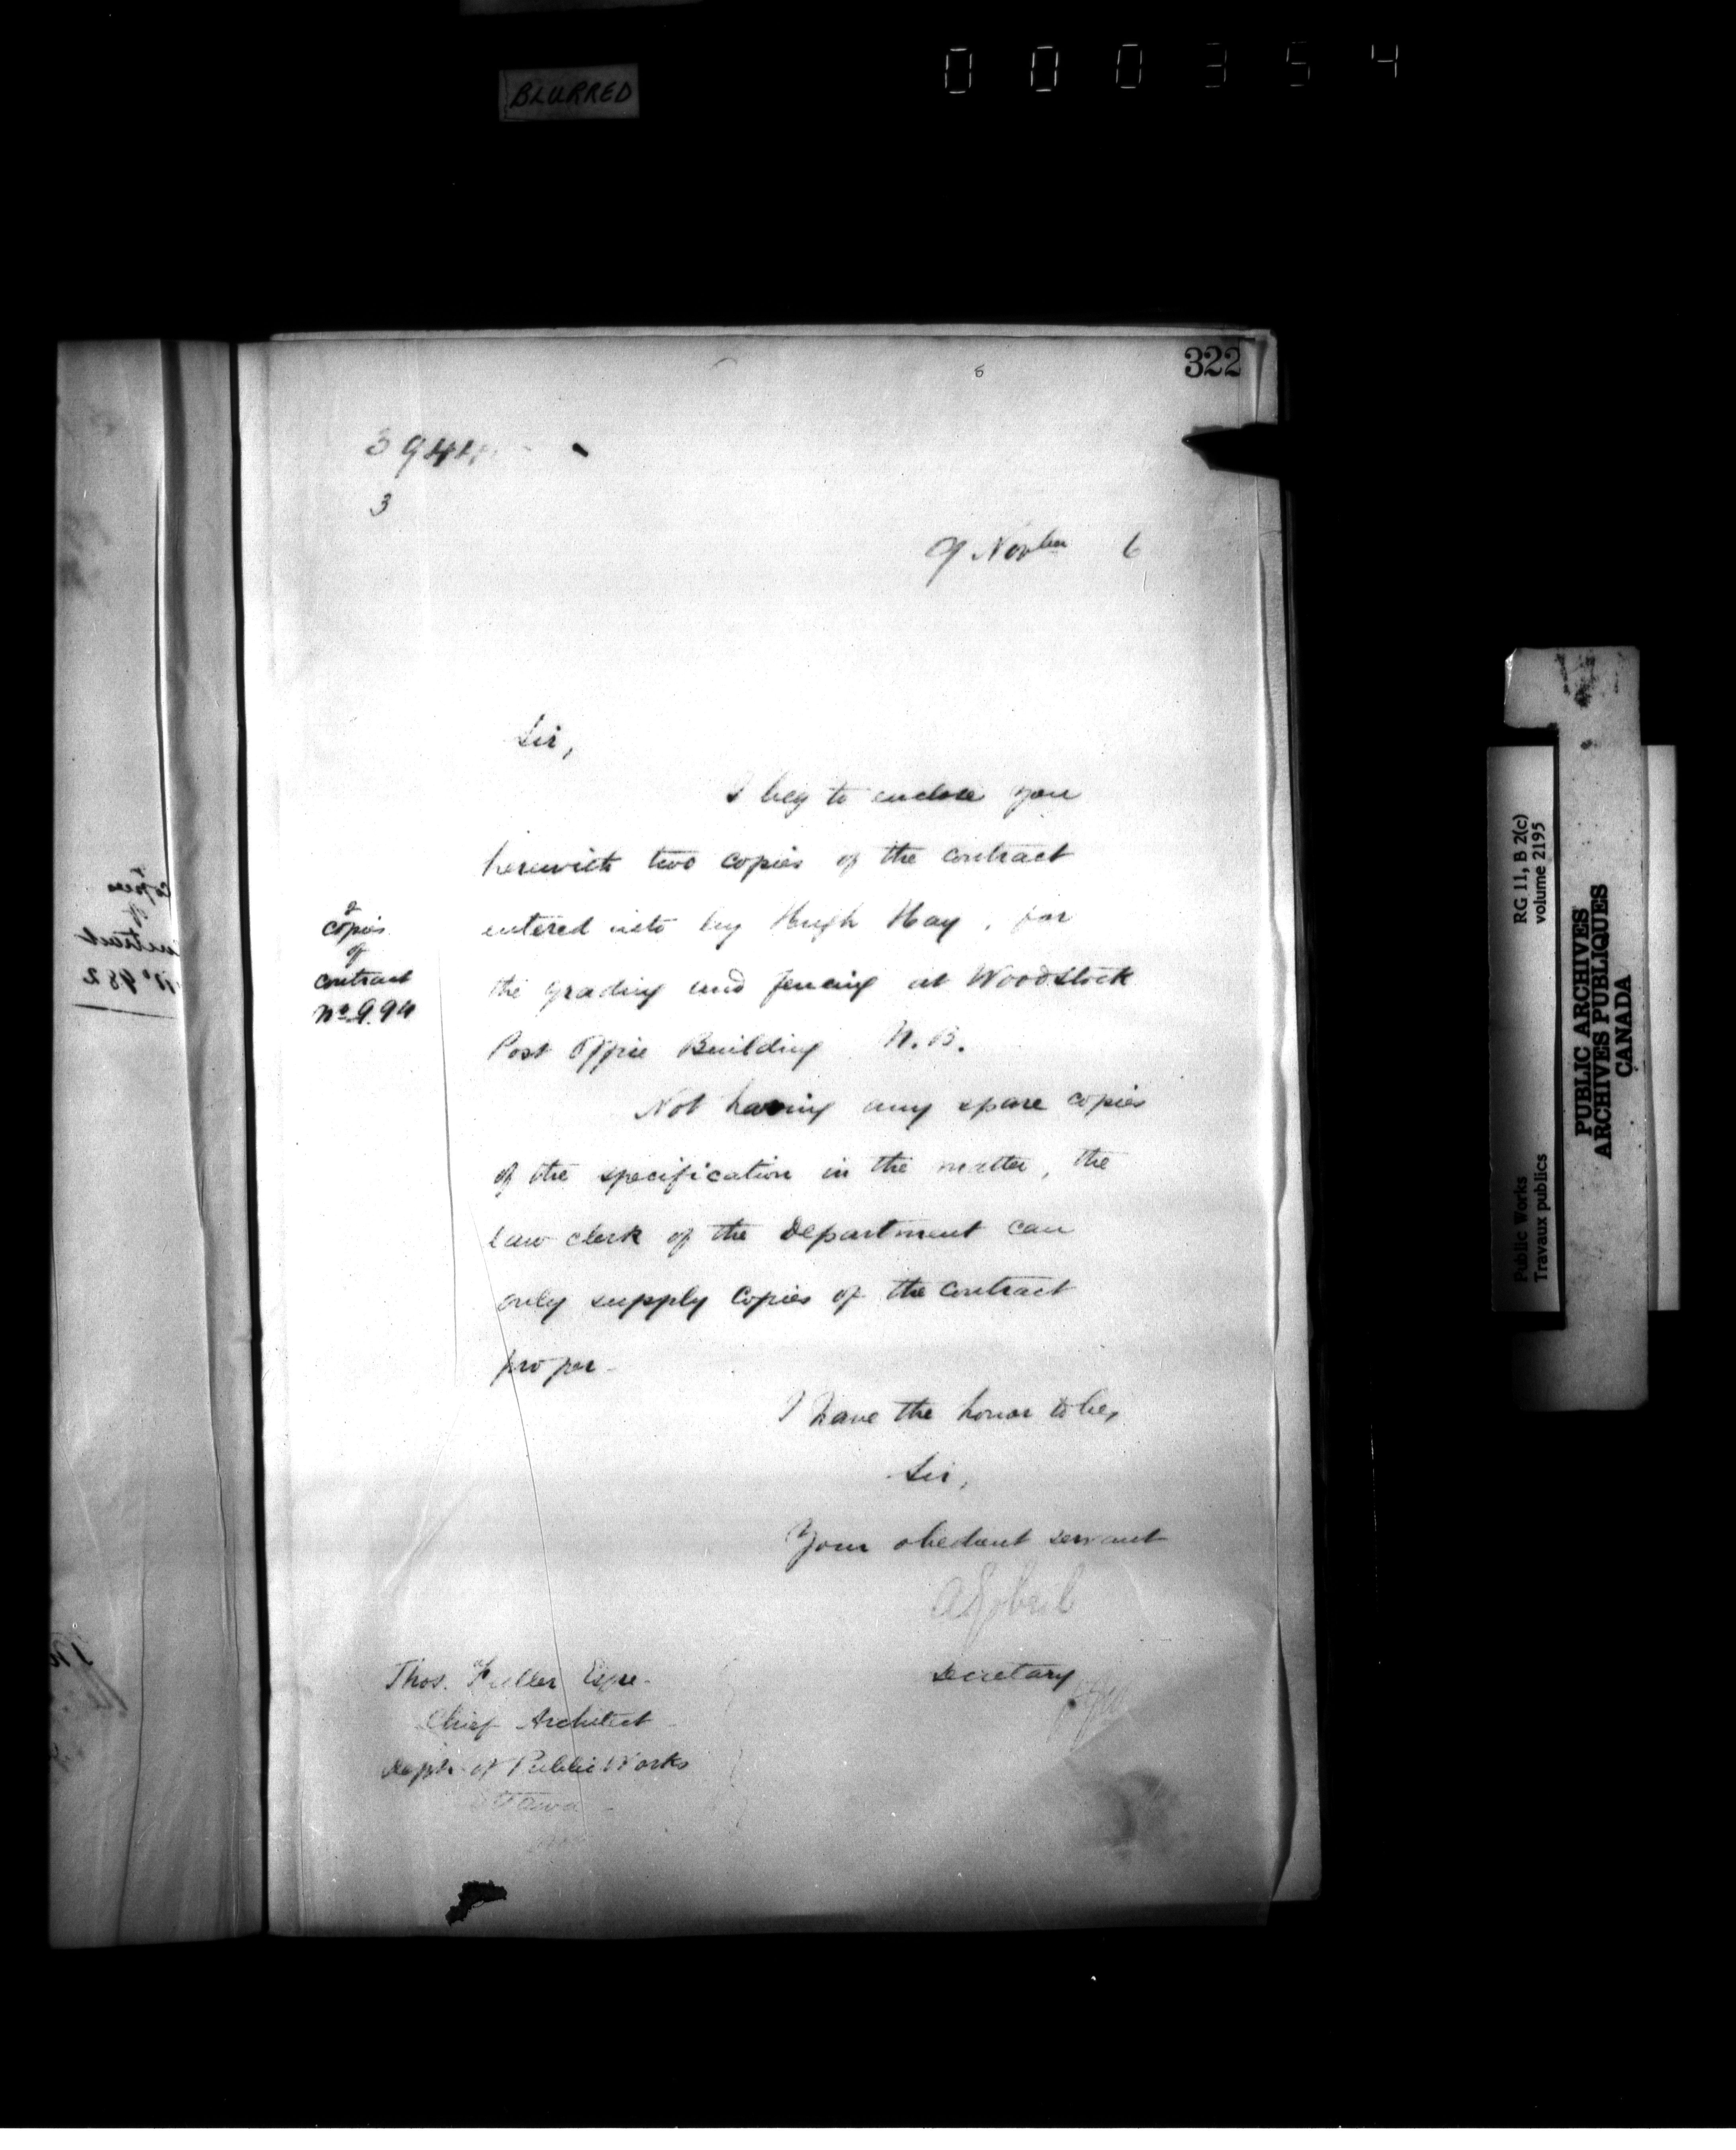 000354
BLURRED
322
3
9 Novber 6
Sir,
I beg to enclose you
herewith two copies of the contract
entered into by Hugh Hay, for
the grading and fencing at Woodstock
Post Office Building N.B.
2
copies
of
contract
No 994
Not having any spare copies
of the specification in the matter, the
Law clerk of the Department can
only supply copies of the contract
proper-
I have the honor to be,
Sir,
Your obedient servant
A Gobeil
Secretary
Thos. Fuller Esqre-
Chief Architect
Dept. of Public Works
Ottawa-
copies
of
contract
No 982
RG 11, B 2(c)
volume 2195
Public Works
Travaux publics
PUBLIC ARCHIVES
ARCHIVES PUBLIQUES
CANADA